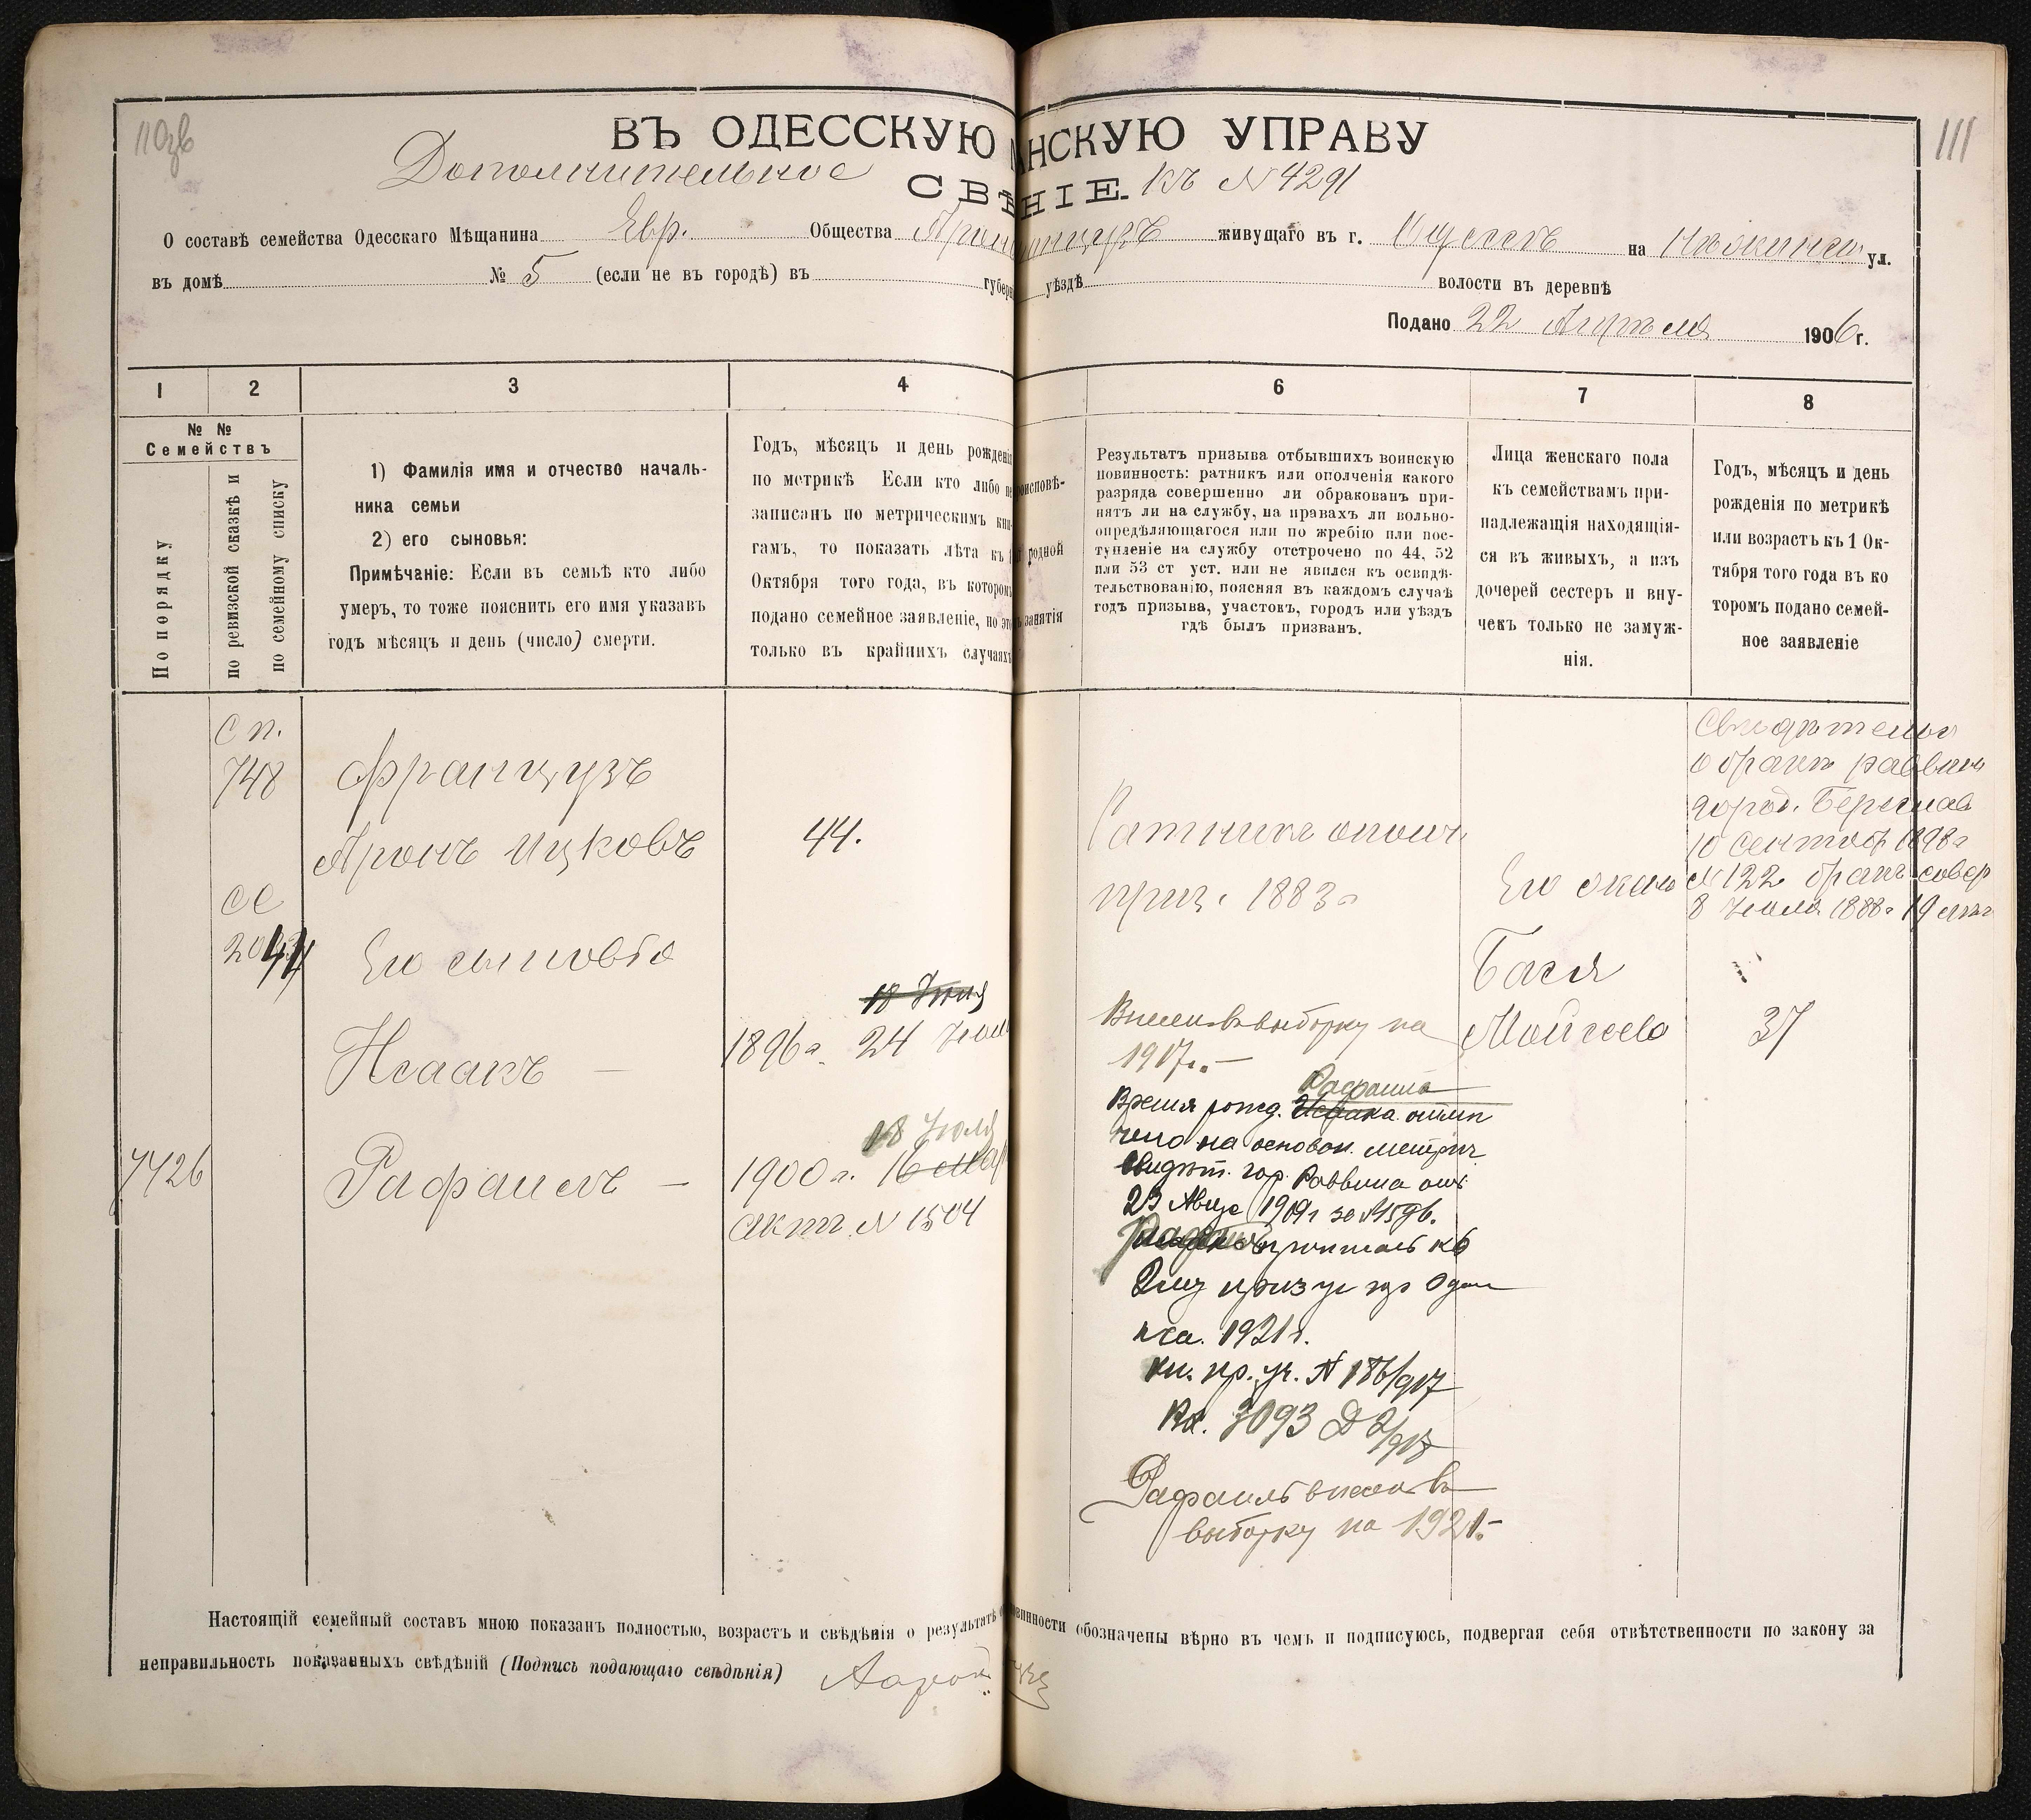 111
ВЪ ОДЕССКУЮ НСКУЮ УПРАВУ
Дополнительное
СВѢ НІЕ. къ № 4291
О составѣ семейства Одесскаго Мѣщанина Евр. Общества живущаго въ г. Одессѣ на ул.
въ домѣ № 5 (если не въ городѣ) въ губерн уѣздѣ волости въ деревнѣ
Подано 22 Апрѣля 1906 г.
1
2
3
4
6
7
8
№ №
Семействъ
По порядку
по ревизской сказкѣ и
по семейному списку
1) Фамилія имя и отчество началь-
ника семьи
2) его сыновья:
Примѣчаніе: Если въ семьѣ кто либо
умеръ, то тоже пояснить его имя указавъ
годъ мѣсяцъ и день (число) смерти.
Годъ, мѣсяцъ и день рожденія
по метрикѣ Если кто либо не
записанъ по метрическимъ кни-
гамъ, то показать лѣта къ 1
Октября того года, въ которомъ
подано семейное заявленіе, но это
только въ крайнихъ случаяхъ
роисповѣ-
родной
занятія
Результатъ призыва отбывшихъ воинскую
повинность: ратникъ или ополченія какого
разряда совершенно ли обракованъ при-
нятъ ли на службу, на правахъ ли вольно-
опредѣляющагося или по жребію или пос-
тупленіе на службу отстрочено по 44, 52
или 53 ст уст. или не явился къ освидѣ-
тельствованію, поясняя въ каждомъ случаѣ
годъ призыва, участокъ, городъ или уѣздъ
гдѣ былъ призванъ.
Лица женскаго пола
къ семействамъ при-
надлежащія находящія-
ся въ живыхъ, а изъ
дочерей сестеръ и вну-
чекъ только не замуж-
нія.
Годъ, мѣсяцъ и день
рожденія по метрикѣ
или возрастъ къ 1 Ок-
тября того года въ ко
торомъ подано семей-
ное заявленіе
Сп.
748
Французъ
Аронъ Ицковъ
44.
Ратникъ ополч
приз. 1883 г
Его жена
Бася
Мойсеева
37
Свидѣтельс
о бракѣ раввина
город. Берислав
10 Сентяб 1898 г
№ 122 бракъ совер
8 1888 г 19
Его сыновья
Исаакъ —
18 Іюня
1896 г. 24 Іюля
Внесен въ выборку на
1917 г. —
7726
Рафаилъ —
18 Іюля
1900 г. 16 Мар
актъ № 1504
Рафаила
Время рожд. Исаака отмѣ
чено на основан. метрич.
свидѣт. гор. Раввина отъ
23 Авгус 1909 г за № 1596.
приписанъ къ
призу
1921 г.
кн. пр. уч. № 186/917
Вх. 3093
Рафаилъ внесен въ
выборку на 1921. —
Настоящій семейный составъ мною показанъ полностью, возрастъ и свѣдѣнія о результатѣ о повинности обозначены вѣрно въ чемъ и подписуюсь, подвергая себя отвѣтственности по закону за
неправильность показанныхъ свѣдѣній (Подпись подающаго свѣдѣнія) Аарон